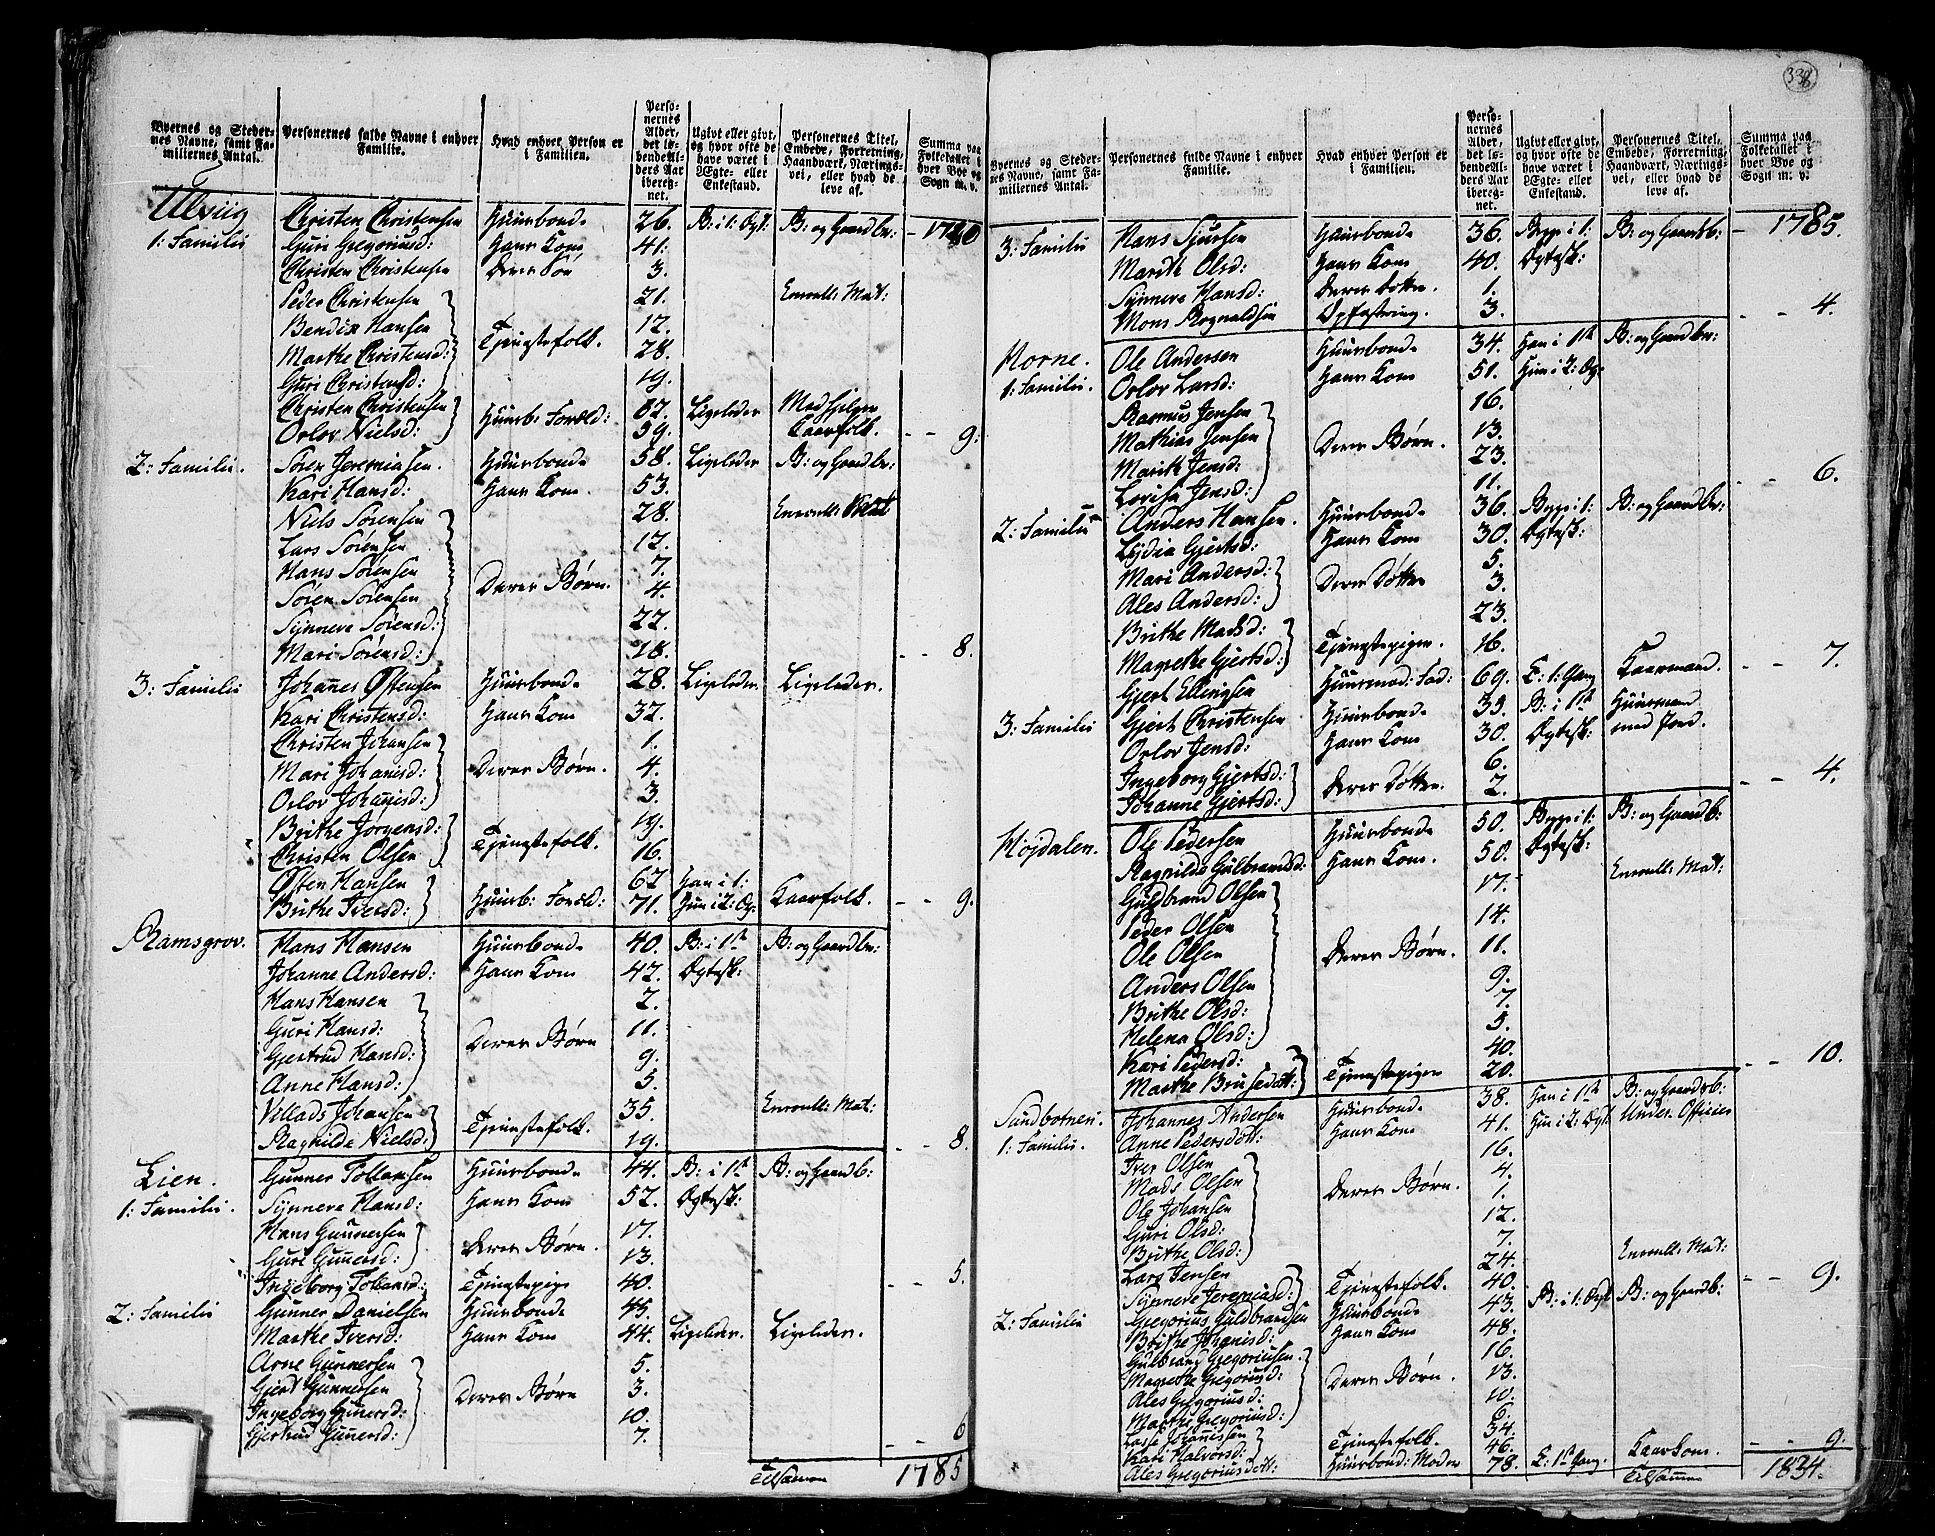 Byernes og Steder-
nes Navne, samt Fa-
miliernes Antal.
Personernes fulde Navne i enhver
Familie.
Hvad enhver Person er
i Familien.
Perso-
nernes
Alder,
det lø-
bende Al-
ders Aar
ibereg-
net.
Ugivt eller givt,
og hvor ofte de
have været i
Ægte- eller
Enkestand.
Personernes Titel,
Embede, Forretning,
Haandværk, Nærings-
vei, eller hvad de
leve af.
Summa paa
Folketallet i
hver Bye og
Sogn m. v.
Ulsvig Christen Christensen Huusbonde 26. B: i 1: Ægt: B: og Gaardbr: 1740
1: Familie Guri Gregoriusd: Hans Kone 41.
Christen Christensen Deres Søn 3.
Peder Christensen 21. Enroull: Mat:
Bendix Hansen 12.
Marthe Christensd: Tjenestefolk. 28.
Guri Christensd: 19.
Christen Christensen Huusb: Foræld: 62. Ligeledes
Orlov Nielsd: 59. Kaarfolk. 9.
2: Familie. Søren Jeremiasen. Huusbonde 58. Ligeledes B: og Gaardbr:
Kari Hansd: Hans Kone. 53.
Niels Sørensen 28. Enroull: Mat
Lars Sørensen 12.
Hans Sørensen 7.
Søren Sørensen Deres Børn. 4.
Synneve Sørensd: 22.
Mari Sørensd: 18. 8.
3: Familie Johannes Østensen Huusbonde 28. Ligeledes Ligeledes.
Kari Christensd: Hans Kone 32.
Christen Johansen 1.
Mari Johannisd: Deres Børn. 4.
Orlov Johannisd: 3.
Brithe Jørgensd: 19.
Christen Olsen Tjenestefolk. 16.
Østen Hansen 62 Han i 1:
Brithe Iversd: Huusb: Foræld: 71. Hun i 2: Æg: Kaarfolk. 9.
Ramsgrov. Hans Hansen Huusbonde 40. B: i 1te B: og Gaardbr:
Johanne Andersd: Hans Kone 42. Ægtesk:
Hans Hansen 2.
Guri Hansd: 11.
Gjertrud Hansd: Deres Børn 9.
Anne Hansd: 5.
Villads Johansen 35. Enroull: Mat:
Ragnilde Nielsd: Tjenestefolk. 19. 8.
Lien. Gunner Tollansen Huusbonde 44. B: i 1te B: og Gaardb:
1: Familie. Synneve Hansd: Hans Kone 52. Ægtesk:
Hans Gunnersen 17.
Guri Gunnersd: Deres Børn. 13.
Ingeborg Tollansd: Tjenestepige 40. 5.
2: Familie Gunner Danielsen Huusbonde 45.
Marthe Iversd: Hans Kone 44. Ligeledes. Ligeledes.
Arne Gunnersen 5.
Gjert Gunnersen 3.
Ingeborg Gunersd: Deres Børn 10.
Gjertrud Gunersd: 7. 6
Tilsammen 1785
338
Byernes og Steder-
nes Navne, samt Fa-
miliernes Antal.
Personernes fulde Navne i enhver
Familie.
Hvad enhver Person er
i Familien.
Perso-
nernes
Alder,
det lø-
bende Al-
ders Aar
ibereg-
net.
Ugivt eller givt,
og hvor ofte de
have været i
Ægte- eller
Enkestand.
Personernes Titel,
Embede, Forretning,
Haandværk, Nærings-
vei, eller hvad de
leve af.
Summa paa
Folketallet i
hver Bye og
Sogn m: v.
3: Familie Hans Sjursen Huusbonde 36. Begge i 1: B: og Gaardb: 1785.
Marith Olsd: Hans Kone 40. Ægtesk:
Synneve Hansd: Deres Dotter. 1.
Mons Rognaldsen Opfostring. 3. 4.
Horne. Ole Andersen Huusbonde 34. Han i 1te B: og Gaardbr:
1: Familie. Orlov Larsd: Hans Kone 51. Hun i 2: Æg:
Rasmus Jensen 16.
Mathias Jensen 13.
Marith Jensd: Deres Børn. 23.
Lovise Jensd: 11. 6.
2: Familie Anders Hansen. Huusbonde 36. Begge i 1: B: og Gaardbr:
Lydia Gjertsd: Hans Kone 30. Ægtesk:
Mari Andersd: 5.
Ales Andersd: Deres Døttre 3.
Brithe Madsd: 23.
Magrethe Gjertsd: Tjenestepiger. 16.
Gjert Ellingsen Huusmod: Fad: 69. E: 1: Gang Kaarmand. 7.
3: Familie Gjert Christensen Huusbonde 39. B: i 1te Huusmand
Orlov Jensd: Hans Kone 30. Ægtesk: med Jord.
Ingeborg Gjertsd: 6.
Johanne Gjertsd: Deres Døttre. 2. 4.
Højdalen. Ole Pedersen Huusbonde 50. Begge i 1: B: og Gaardb:
Ragnilde Gulbrandsd: Hans Kone. 50. Ægtesk:
Guldbrand Olsen 17. Enroull: Mat:
Peder Olsen 14.
Ole Olsen Deres Børn. 11.
Anders Olsen 9.
Brithe Olsd: 7.
Helena Olsd: 5.
Kari Pedersd: 40.
Marthe Brusedott: Tjenestepiger 20. 10.
Sundbotnen. Johannes Andersen Huusbonde. 38. Han i 1te B: og Gaardrb:
1: Familie. Anne Pedersdott: Hans Kone 41. Hun i 2: Ægt Under-Officier
Iver Olsen 16.
Mads Olsen 4.
Ole Johansen Deres Børn. 1.
Guri Olsd: 12.
Brithe Olsd: 7.
Lars Jensen 24. Enroull: Mat:
Synneve Jeremiasd: Tjenestefolk. 40. 9.
2: Familie Gregorius Guldbrandsen Huusbonde 43. B: i 1: Ægt B: og Gaardb:
Brithe Johanisd: Hans Kone 48.
Gulbrand Gregoriusen. 16.
Magrethe Gregoriusd: Deres Børn. 13.
Ales Gregoriusd: 10.
Marthe Gregoriusd: 6.
Lasse Johannisen 34.
Kari Halvorsd: Tjenestefolk. 46.
Ales Gregoriusdott: Huusbond: Moder 78. E: 1te Gang. Kaarkone. 9.
Tilsammen 1834.